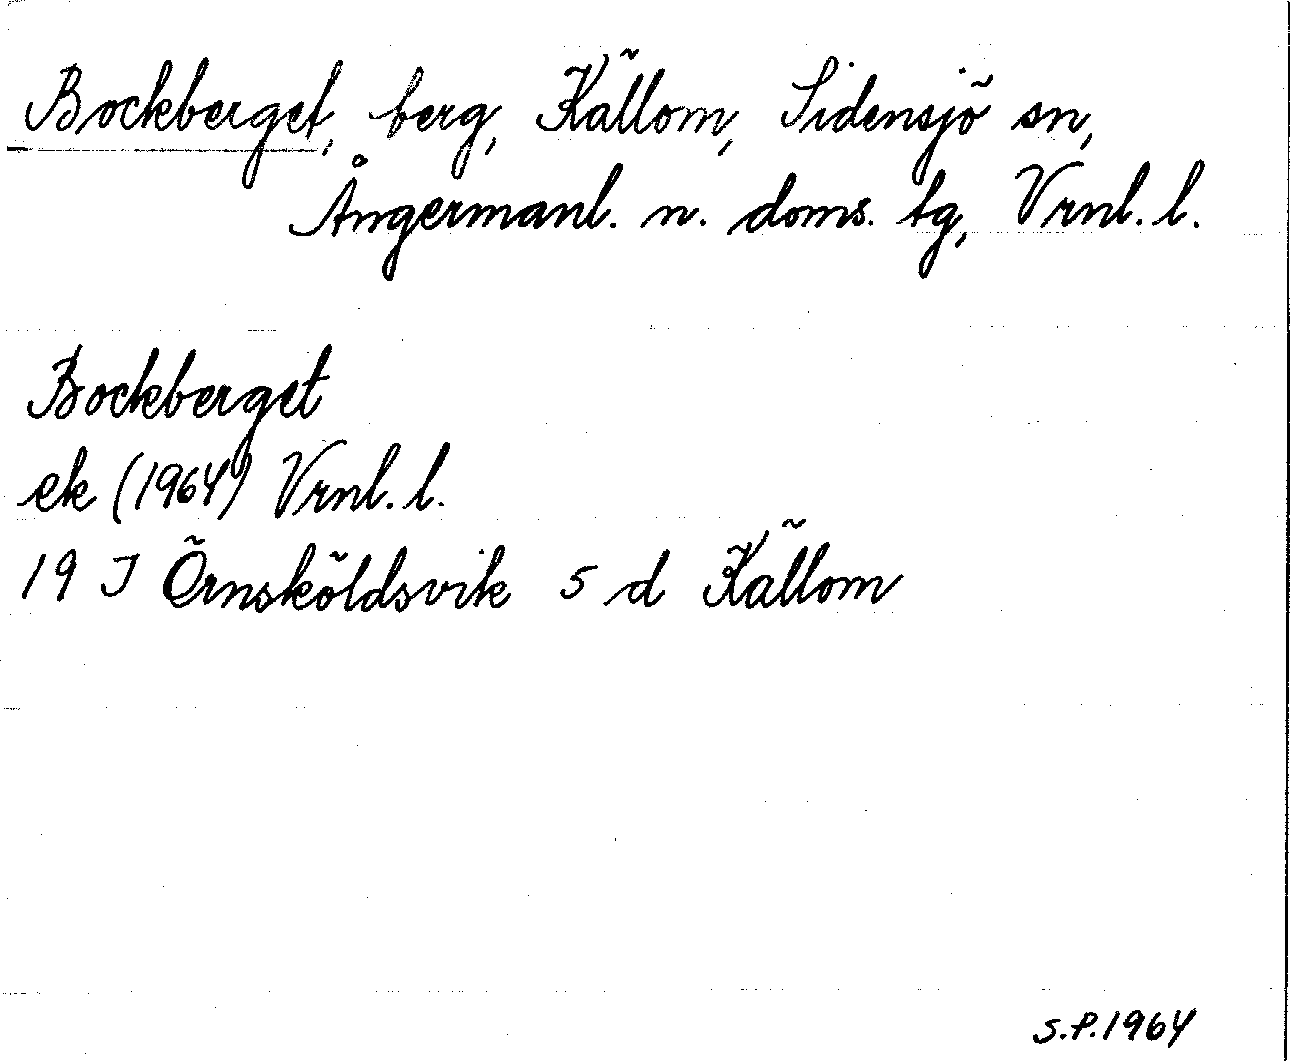 Bockberget, berg, Källom, Sidensjö sn,
Ångermanl. n. doms. tg, Vrnl. l.
Bockberget
ek (1964) Vrnl. l.
19 J Örnsköldsvik 5 d Källom
S.P. 1964